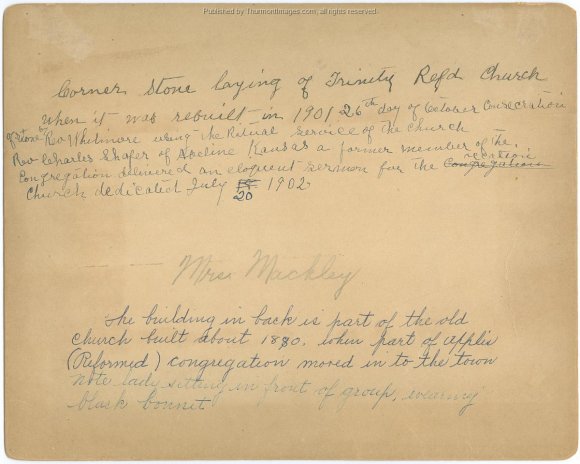 Published by ThurmontImages.com, all rights reserved.
Corner Stone laying of Trinity Refd Church
when it was rebuilt in 1901, 26th day of October Consecration
of stone by Rev Whitmore using the Ritual Service of the Church
Rev Charles Shafer of Kansas a former member of the
Congregation delivered an eloquent sermon for the Congregation occation
Church dedicated July 20 1902.
Mrs. Mackley
The building in back is part of the old
church built about 1880. when part of Apples
(Reformed) congregation moved in to the town
Note lady sitting in front of group, wearing
black bonnet